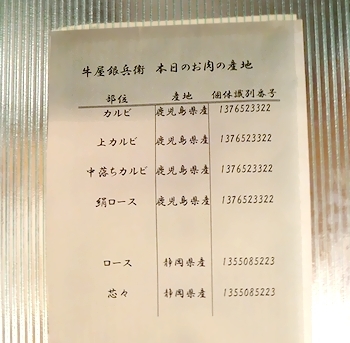 牛屋銀兵衛 本日のお肉の産地
部位 産地 個体識別番号
カルビ 鹿児島県産 1376523322
上カルビ 鹿児島県産 1376523322
中落ちカルビ 鹿児島県産 1376523322
絹ロース 鹿児島県産 1376523322
ロース 静岡県産 1355085223
芯々 静岡県産 1355085223